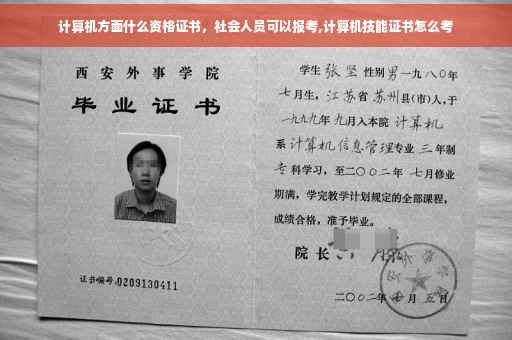 计算机方面什么资格证书，社会人员可以报考,计算机技能证书怎么考
西安外事学院
毕业证书
证书编号:0209130411
学生 张坚 性别 男 一九八〇年
七月生，江苏省 苏州县(市)人,于
一九九九年 九月入本院 计算机
系 计算机信息管理专业 三 年制
专 科学习，至二〇〇二年 七月修业
期满，学完教学计划规定的全部课程，
成绩合格，准予毕业。
院 长
二〇〇二年 七 月 五 日